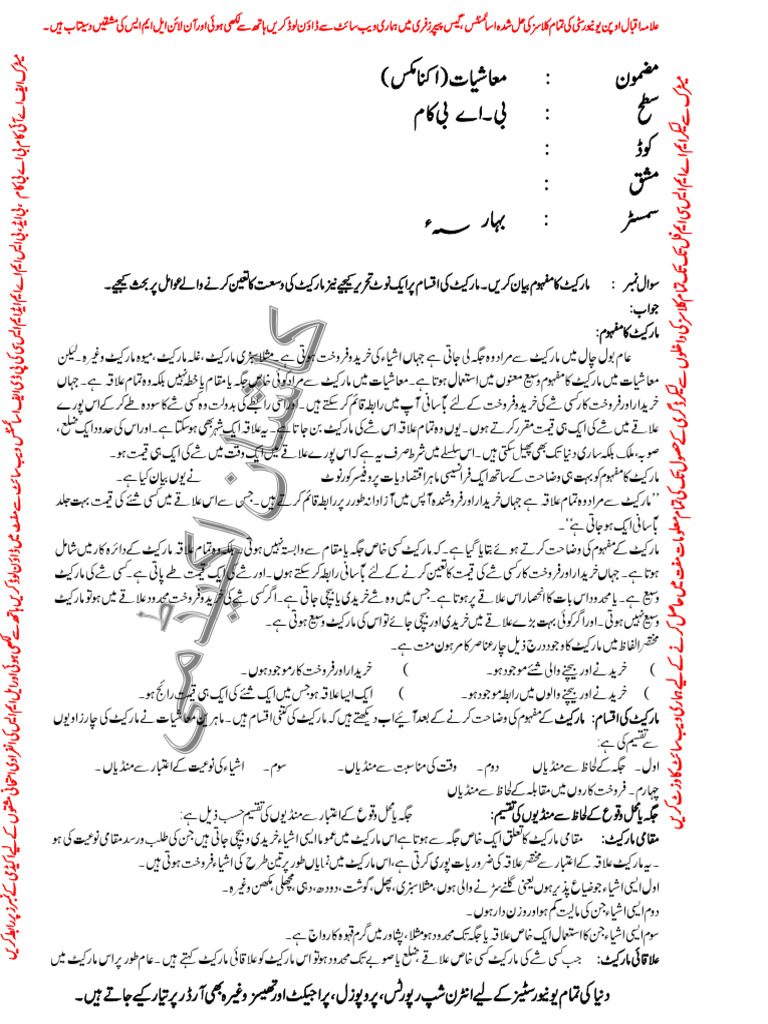 علامہ اقبال اوپن یونیورسٹی کی تمام کلاسز کی حل شدہ اسائنمنٹس، گیس پیپرز فری میں ہماری ویب سائٹ سے ڈاؤن لوڈ کریں ہاتھ سے لکھی ہوئی اور آن لائن ایل ایم ایس کی مشقیں دستیاب ہیں۔
مضمون : معاشیات (اکنامکس)
سطح : بی۔اے بی کام
کوڈ :
مشق :
سمسٹر : بہار ؁ء
سوال نمبر : مارکیٹ کا مفہوم بیان کریں۔ مارکیٹ کی اقسام پر ایک نوٹ تحریر کیجیے نیز مارکیٹ کی وسعت کا تعین کرنے والے عوامل پر بحث کیجیے۔
جواب:
مارکیٹ کا مفہوم:
عام بول چال میں مارکیٹ سے مراد وہ جگہ لی جاتی ہے جہاں اشیاء کی خرید و فروخت ہوتی ہے۔ مثلا سبزی مارکیٹ، غلہ مارکیٹ، میوہ مارکیٹ وغیرہ۔ لیکن
معاشیات میں مارکیٹ کا مفہوم وسیع معنوں میں استعمال ہوتا ہے۔ معاشیات میں مارکیٹ سے مراد کوئی خاص جگہ یا مقام یا خطہ نہیں بلکہ وہ تمام علاقہ ہے۔ جہاں
خریدار اور فروخت کار کسی شے کی خرید و فروخت کے لئے بآسانی آپ میں رابطہ قائم کر سکتے ہیں۔ اور اسی رابطے کی بدولت وہ کسی شے کا سودہ طے کر کے اس پورے
علاقے میں شے کی ایک ہی قیمت مقرر کرتے ہوں۔ یوں وہ تمام علاقہ اس شے کی مارکیٹ بن جاتا ہے۔ یہ علاقہ ایک شہر بھی ہو سکتا ہے۔ اور اس کی حدود ایک ضلع،
صوبہ، ملک، بلکہ ساری دنیا تک بھی پھیل سکتی ہیں۔ اس سلسلے میں شرط صرف یہ ہے کہ اس پورے علاقے میں ایک وقت میں شے کی ایک ہی قیمت ہو۔
مارکیٹ کا مفہوم کو بہت ہی وضاحت کے ساتھ ایک فرانسیسی ماہر اقتصادیات پروفیسر کورنوٹ نے یوں بیان کیا ہے۔
’’مارکیٹ سے مراد وہ تمام علاقہ ہے جہاں خریدار اور فروشندہ آپس میں آزادانہ طور پر رابطہ قائم کرتے ہیں۔ جس سے اس علاقے میں کسی شئے کی قیمت بہت جلد
بآسانی ایک ہو جاتی ہے‘‘۔
مارکیٹ کے مفہوم کی وضاحت کرتے ہوئے بتایا گیا ہے۔ کہ مارکیٹ کسی خاص جگہ یا مقام سے وابستہ نہیں ہوتی۔ بلکہ وہ تمام علاقہ مارکیٹ کے دائرہ کار میں شامل
ہوتا ہے۔ جہاں خریدار اور فروخت کار کسی شے کی قیمت کا تعین کرنے کے لئے بآسانی رابطہ کر سکتے ہوں۔ اور شے کی ایک قیمت طے پاتی ہے۔ کسی شے کی مارکیٹ
وسیع ہے۔ یا محدود اس بات کا انحصار اس علاقے پر ہوتا ہے۔ جس میں وہ شے خریدی یا بیچی جاتی ہے۔ اگر کسی شے کی خرید و فروخت محدود علاقے میں ہو تو مارکیٹ
وسیع نہیں ہوتی۔ اور اگر کوئی بہت بڑے علاقے میں خریدی اور بیچی جائے تو اس کی مارکیٹ وسیع ہوتی ہے۔
مختصر الفاظ میں مارکیٹ کا وجود درج ذیل چار عناصر کا مرہون منت ہے۔
( خریدنے اور بیچنے والی شئے موجود ہو۔ ( خریدار اور فروخت کار موجود ہوں۔
( خریدنے اور بیچنے والوں میں رابطہ موجود ہو۔ ( ایک ایسا علاقہ ہو جس میں ایک شئے کی ایک ہی قیمت رائج ہو۔
مارکیٹ کی اقسام: مارکیٹ کے مفہوم کی وضاحت کرنے کے بعد آئیے اب دیکھتے ہیں کہ مارکیٹ کی کتنی اقسام ہیں۔ ماہرین معاشیات نے مارکیٹ کی چار زاویوں
سے تقسیم کی ہے:
اول۔ جگہ کے لحاظ سے منڈیاں دوم۔ وقت کی مناسبت سے منڈیاں۔ سوم۔ اشیاء کی نوعیت کے اعتبار سے منڈیاں۔
چہارم۔ فروخت کاروں میں مقابلہ کے لحاظ سے منڈیاں
جگہ یا محل وقوع کے لحاظ سے منڈیوں کی تقسیم: جگہ یا محل وقوع کے اعتبار سے منڈیوں کی تقسیم حسب ذیل ہے:
مقامی مارکیٹ: مقامی مارکیٹ کا تعلق ایک خاص جگہ سے ہوتا ہے اس میں عموما ایسی اشیاء خریدی و بیچی جاتی ہیں جن کی طلب و رسد مقامی نوعیت کی ہو
۔ یہ مارکیٹ علاقہ کے اعتبار سے مختصر علاقہ کی ضروریات پوری کرتی ہے، اس مارکیٹ میں نمایاں طور پر تین طرح کی اشیاء فروخت ہوتی ہیں۔
اول ایسی اشیاء جو ضیاع پذیر ہوں یعنی گلنے سڑنے والی ہوں، مثلا سبزی، پھل، گوشت، دودھ، دہی، مچھلی مکھن وغیرہ۔
دوم ایسی اشیاء جن کی مالیت کم ہو اور وزن دار ہوں۔
سوم ایسی اشیاء جن کا استعمال ایک خاص علاقہ یا جگہ تک محدود ہو مثلا، پشاور میں گرم قہوہ کا رواج ہے۔
علاقائی مارکیٹ: جب کسی شے کی مارکیٹ کسی خاص علاقے، ضلع یا صوبے تک محدود ہو تو اس مارکیٹ کو علاقائی مارکیٹ کہتے ہیں۔ عام طور پر اس مارکیٹ میں
دنیا کی تمام یونیورسٹیز کے لیے انٹرن شپ رپورٹس، پروپوزل، پراجیکٹ اور تھیسز وغیرہ بھی آرڈر پر تیار کیے جاتے ہیں۔
میٹرک سے لیکر ایم اے ایم ایس سی ایم فل تک تمام کلاسز کی داخلوں سے لیکر ڈگری کے حصول تک کی تمام معلومات مفت میں حاصل کرنے کے لیے ہماری ویب سائٹ کا وزٹ کریں